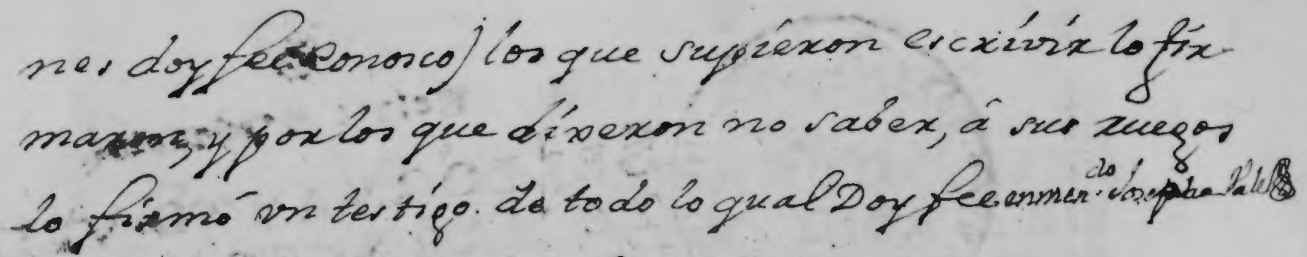 nes doy fee conosco) los que supieron escrivir lo fir-
maron, y por los que dixeron no saber, â sus ruegos
lo firmó vn testigo. de todo lo qual Doy fee enmen.do Josepha